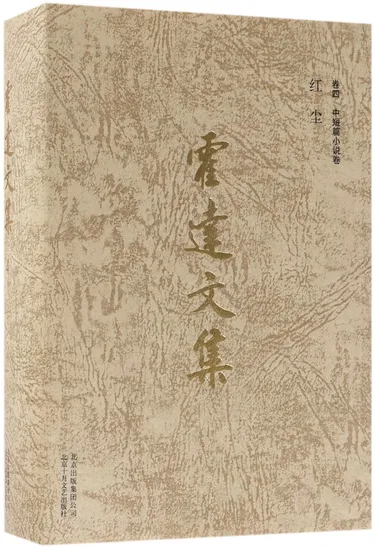 卷四 中短篇小说卷
红尘
霍达文集
北京出版集团公司
北京十月文艺出版社
霍达文集